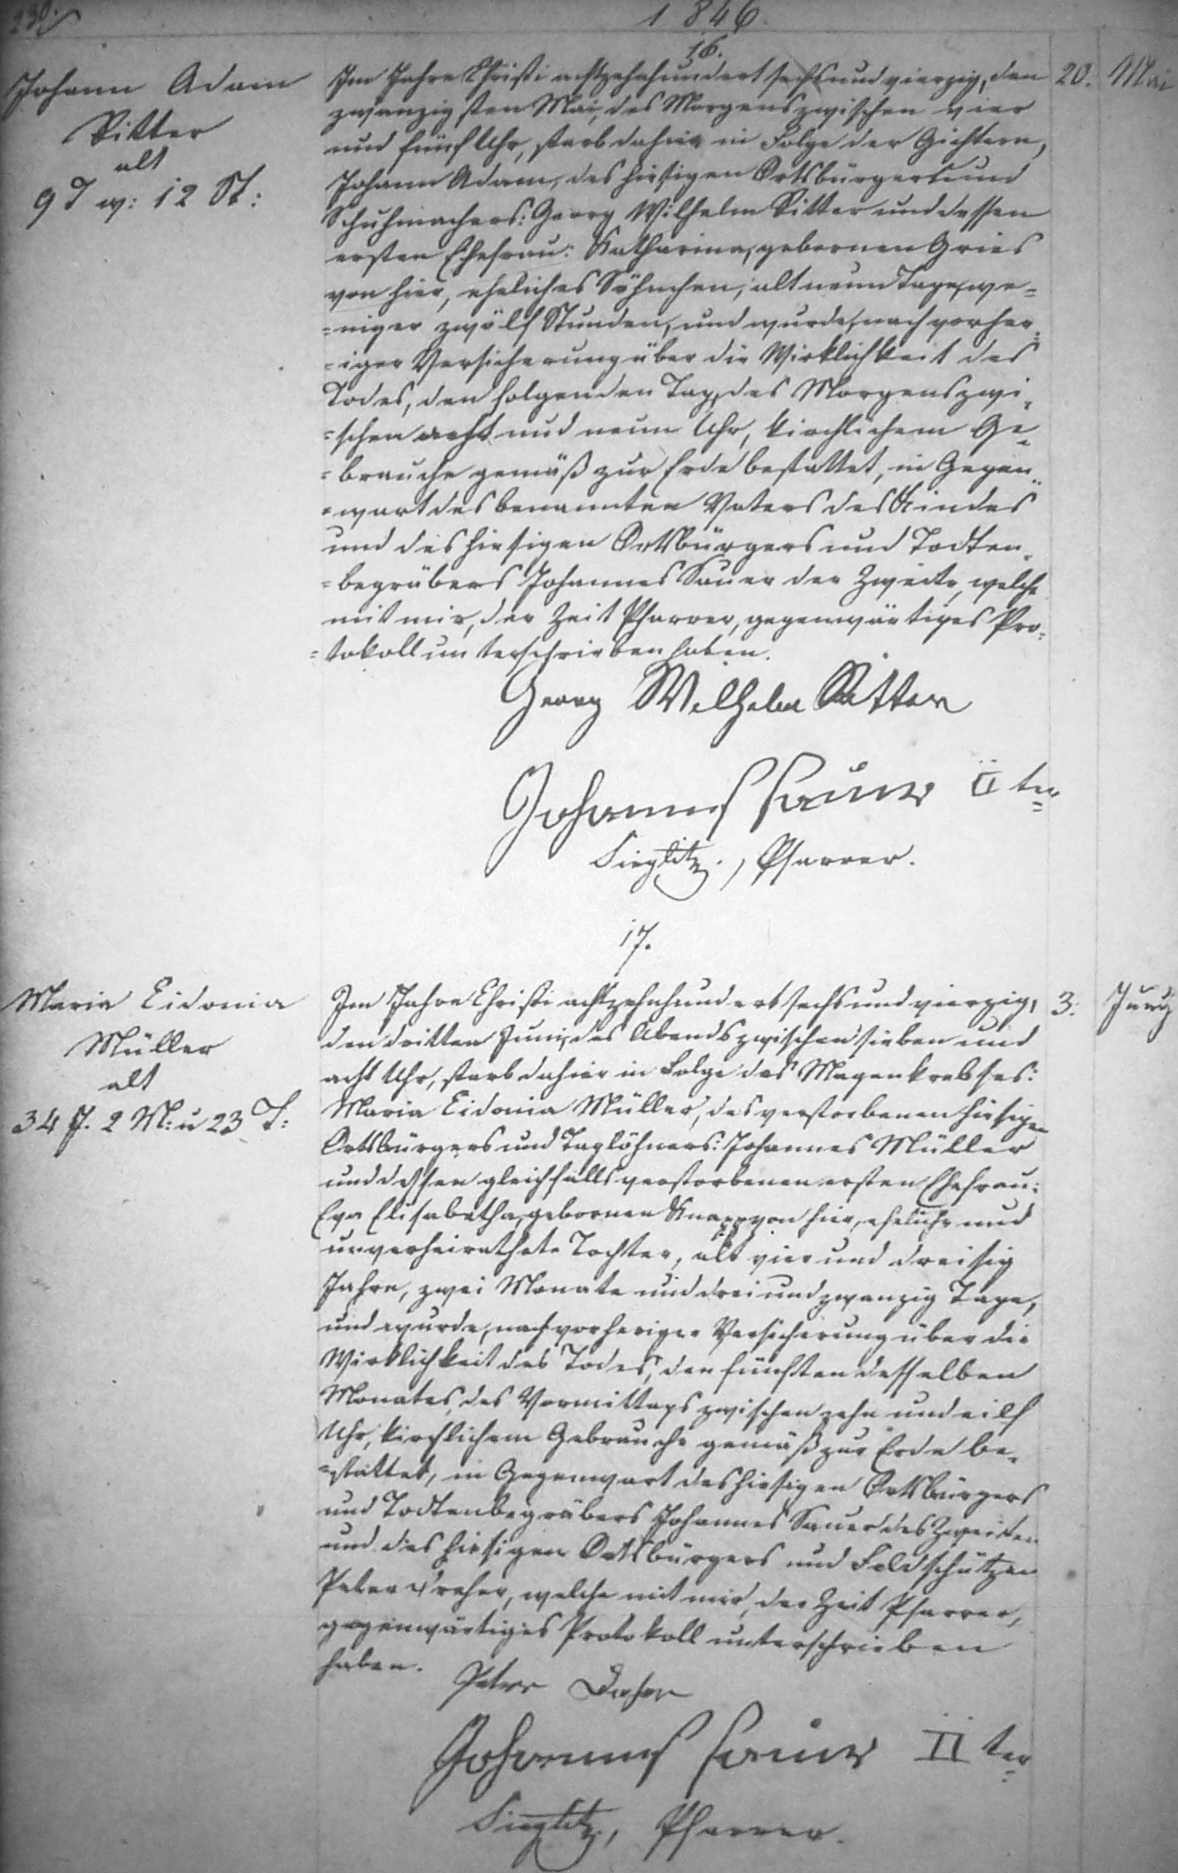 230.
1846.
16.
Johann Adam
Ritter
alt
9 T w: 12 St:
Im Jahre Christi achtzehnhundert sechs und vierzig, den
zwanzigsten Mai, des Morgens zwischen vier
und fünf Uhr, starb dahier in Folge der Gichtern,
Johann Adam, des hiesigen Ortsbürgers und
Schuhmachers: Georg Wilhelm Ritter und dessen
ersten Ehefrau: Katharina, gebornen Gries
von hier, eheliches Söhnchen, alt neun Tage, we=
=niger zwölf Stunden, und wurde, nach vorher=
=iger Versicherung über die Wirklichkeit des
Todes, den folgenden Tag, des Morgens zwi=
=schen acht und neun Uhr, kirchlichem Ge=
=brauche gemäß zur Erde bestattet, in Gegen=
=wart des benannten Vaters des Kindes
und des hiesigen Ortsbürgers und Todten=
=begräbers Johannes Sauer der Zweite, welche
mit mir, der Zeit Pfarrer, gegenwärtiges Pro=
=tokoll unterschrieben haben.
20. Mai
Georg Wilhelm Ritter
Johannes Sauer II ter
Sieglitz, Pfarrer.
17.
Maria Sidonia
Müller
alt
34 J. 2 M: u 23 T:
Im Jahre Christi achtzehnhundert sechs und vierzig,
den dritten Juni, des Abends zwischen sieben und
acht Uhr, starb dahier in Folge des Magenkrebses:
Maria Sidonia Müller, des verstorbenen hiesigen
Ortsbürgers und Taglöhners: Johannes Müller
und dessen gleichfalls verstorbenen ersten Ehefrau:
Eva Elisabetha, gebornen Knapp von hier, eheliche und
unverheirathete Tochter, alt vier und dreisig
Jahre, zwei Monate und drei und zwanzig Tage,
und wurde, nach vorheriger Versicherung über die
Wirklichkeit des Todes, den fünften desselben
Monates, des Vormittags zwischen zehn und eilf
Uhr, kirchlichem Gebrauche gemäß zur Erde be=
=stattet, in Gegenwart des hiesigen Ortsbürgers
und Todtenbegräbers Johannes Sauer des Zweiten
und des hiesigen Ortsbürgers und Feldschützen
Peter Dreher, welche mit mir, der Zeit Pfarrer,
gegenwärtiges Protokoll unterschrieben
haben.
3. Juny
Peter Dreher
Johannes Sauer II ter
Sieglitz, Pfarrer.